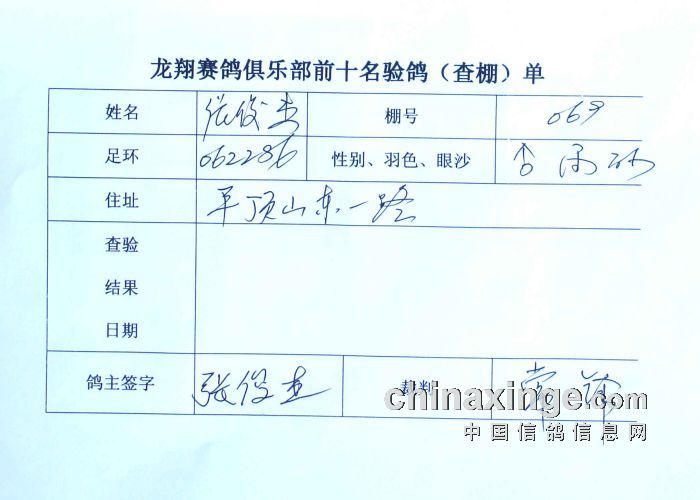 龙翔赛鸽俱乐部前十名验鸽（查棚）单
姓名 张俊杰 棚号 069
足环 062286 性别、羽色、眼沙
住址 平顶山东一路
查验
结果
日期
鸽主签字 张俊杰 裁判
chinaxinge.com
中国信鸽信息网